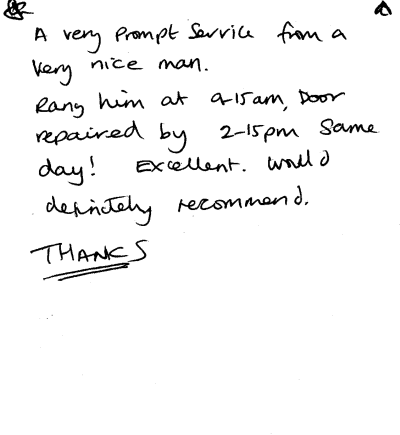 A very Prompt Service from a
very nice man.
Rang him at 9-15am, Door
repaired by 2-15pm Same
day! Excellent. Would
definitely recommend.
THANKS